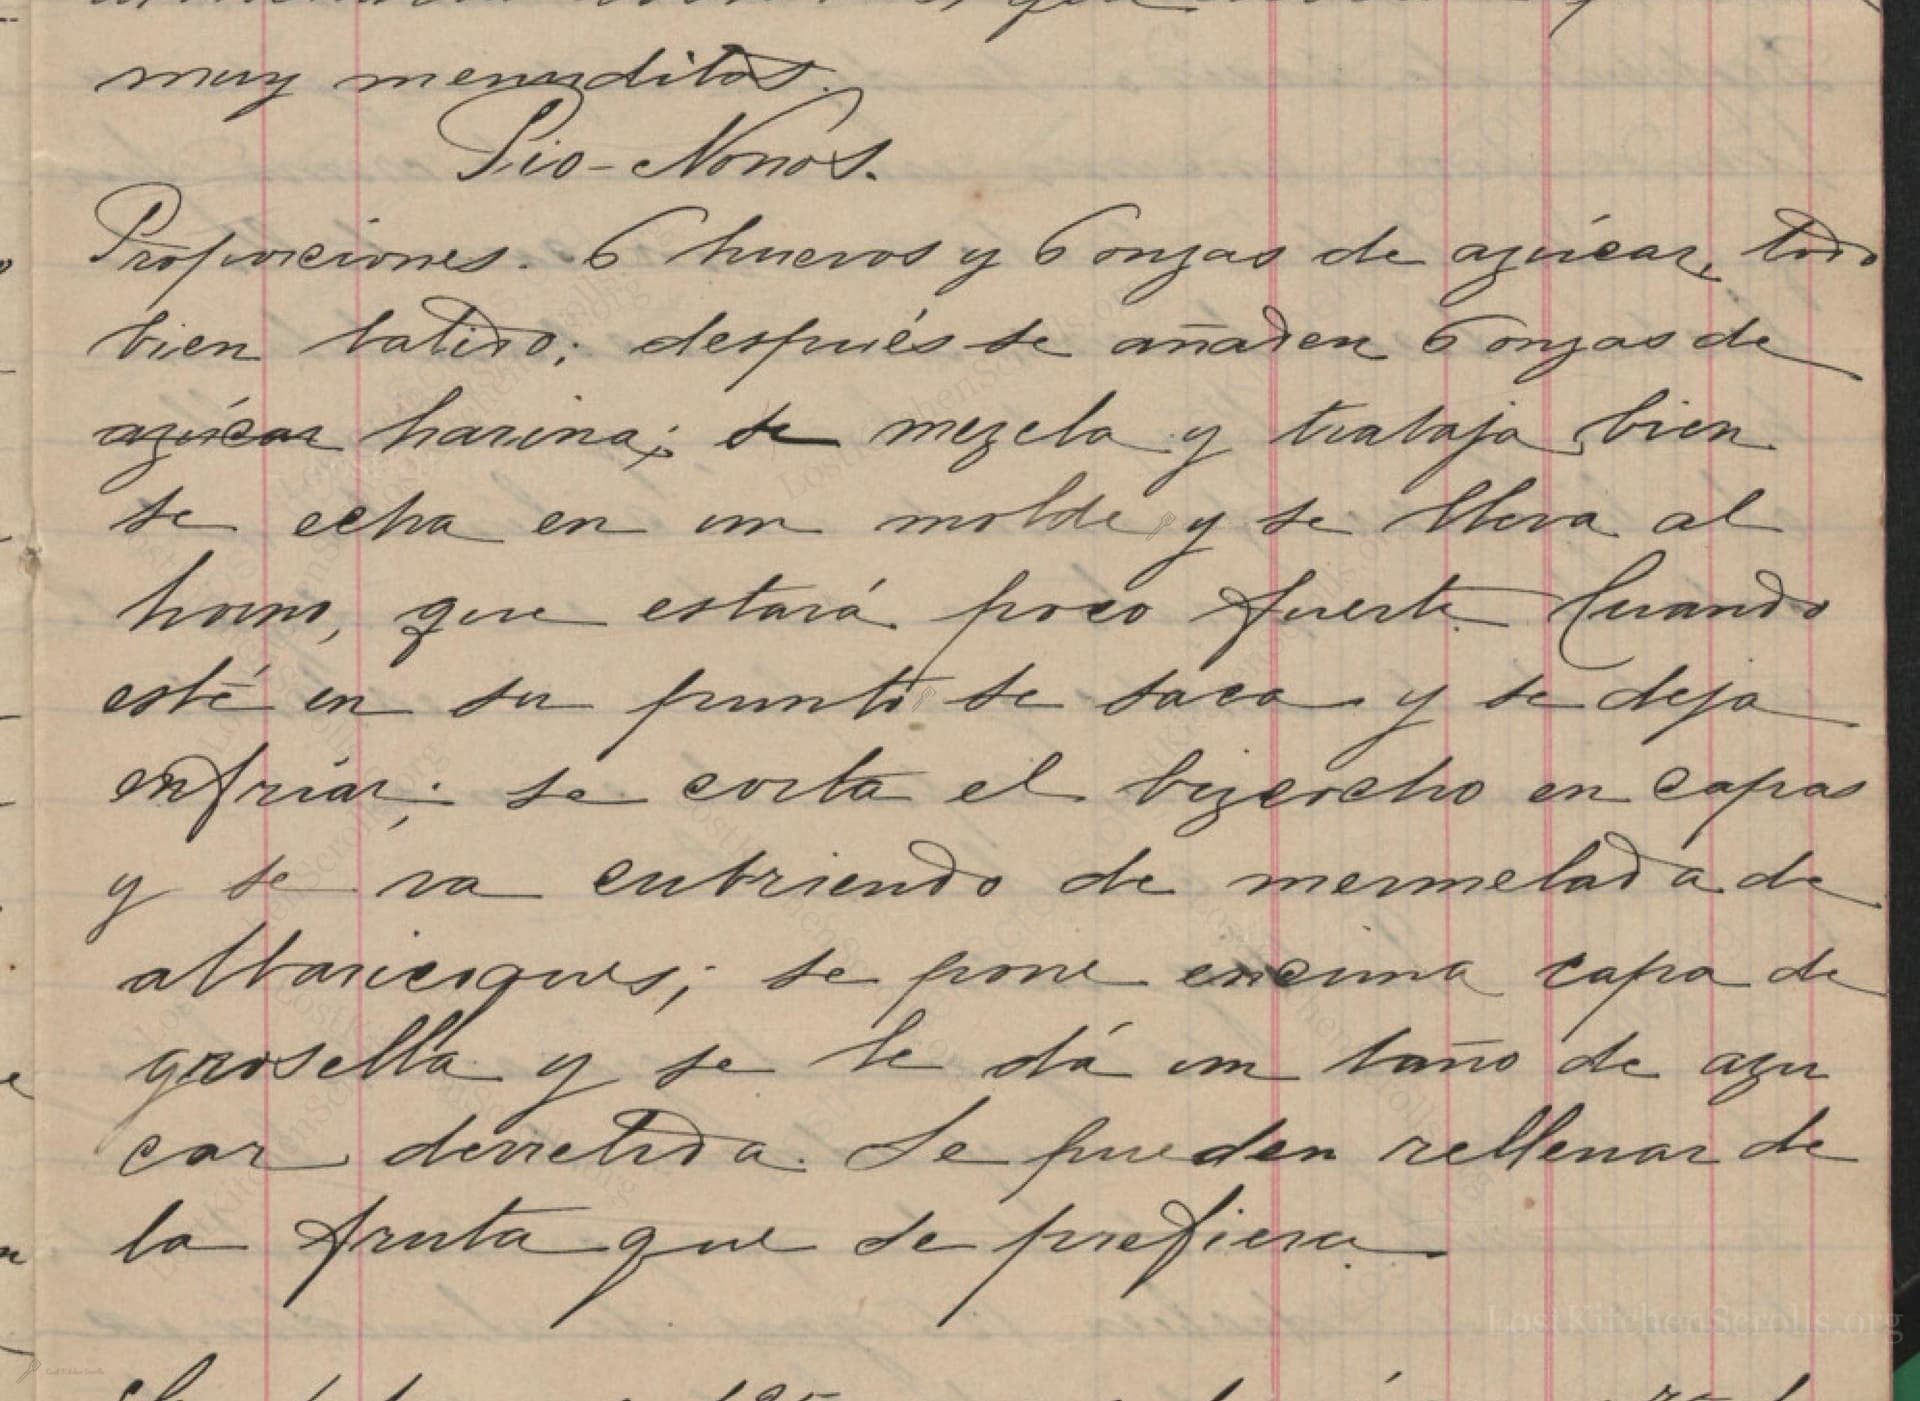 muy menuditos.
Pio-Nonos.
Proporciones. 6 huevos y 6 onzas de azúcar, todo
bien batido; después se añaden 6 onzas de
azúcar harina; se mezcla y trabaja bien
se echa en un molde y se lleva al
horno, que estará poco fuerte. Cuando
esté en su punto se saca y se deja
enfriar; se corta el bizcocho en capas
y se va cubriendo de mermelada de
albaricoques; se pone encima capa de
grosella y se le dá un baño de azu
car derretida. Se pueden rellenar de
la fruta que se prefiera.
LostKitchenScrolls.org